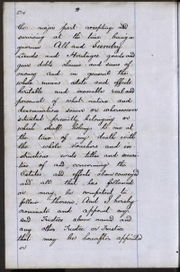 the major part accepting and
surviving at the time being a
quorum All and Sundry
Lands and Heritages goods and
gear debts sums and sums of
money and in general the
whole means estate and effects
heritable and moveable real and
personal of what nature and
denomination soever or wheresoever
situated presently belonging or
which shall belong to me at
the time of my death with
the whole vouchers and in-
structions writs titles and secu-
rities of and concerning the
Estates and effects above conveyed
and all that has followed
or may be competent to
follow thereon And I hereby
nominate and appoint my
said Trustees above named and
any other Trustee or Trustees
that may be hereafter appointed
or